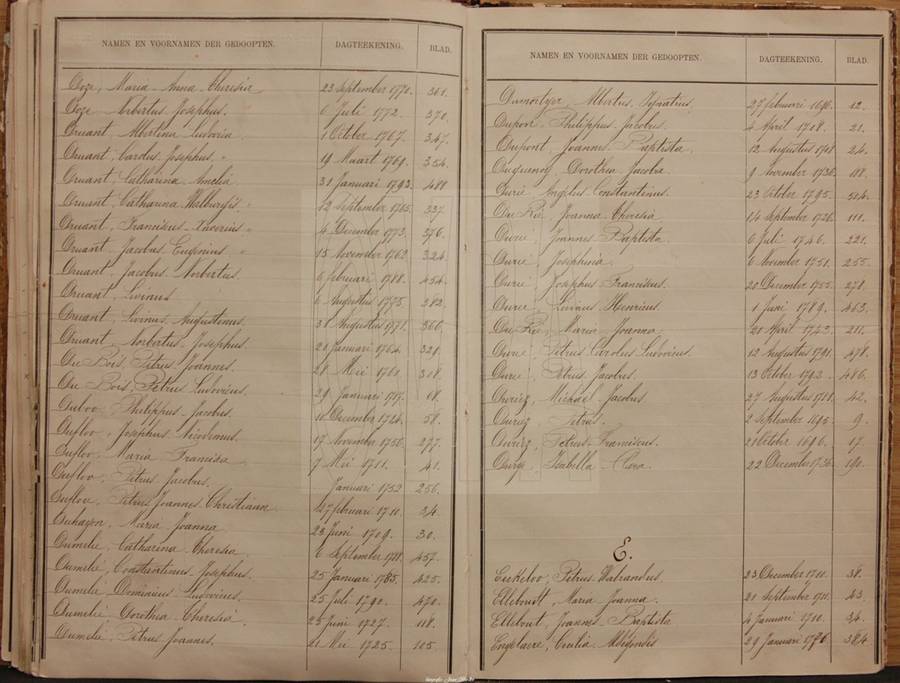 NAMEN EN VOORNAMEN DER GEDOOPTEN. DAGTEEKENING. BLAD.
Doze, Maria Anna Theresia 23 September 1770. 361.
Doze Norbertus Josephus. 6 Juli 1772. 370.
Druant, Albertina Ludovica 1 October 1767. 347.
Druant, Carolus Josephus, 19 Maart 1769. 354.
Druant, Catharina Amelia 31 Januari 1793. 488.
Druant, Catharina Walburgis 12 September 1765. 337.
Druant, Franciscus Xaverius 4 December 1773. 376.
Druant Jacobus Eugenius 15 November 1762. 324.
Druant, Jacobus Norbertus 6 februari 1788. 454.
Druant, Livinus 6 Augustus 1775. 382.
Druant, Livinus Augustinus. 31 Augustus 1771. 366.
Druant, Norbertus Josephus. 20 Januari 1764. 329.
Du Bois, Petrus Joannes. 28 Mei 1761. 318.
Du Bois, Petrus Ludovicus. 29 Januari 1717. 68.
Philippus Jacobus. 10 December 1724. 58.
Josephus Nicodemus. 19 November 1756. 277.
Duflov, Maria Francisca 7 Mei 1711. 41.
Duflov, Petrus Jacobus. Januari 1752 256.
Duflov, Petrus Joannes Christiaan 17 februari 1711. 34.
Duhayon, Maria Joanna 23 Juni 1709. 30.
Dumelie, Catharina Theresia. 6 September 1788. 457.
Dumelie, Constantinus Josephus. 25 Januari 1785. 425.
Dumelié Dominicus Ludovicus. 25 Juli 1790. 470.
Dumelié Dorothea Theresia 25 Juni 1727. 118.
Dumelié, Petrus Joannes. 21 Mei 1725. 105.
NAMEN EN VOORNAMEN DER GEDOOPTEN. DAGTEEKENING. BLAD.
Dumortyer, Albertus, Ignatius. 27 februari 1696. 12.
Dupont, Philippus Jacobus. 4 April 1708. 21.
Dupont, Joannes Baptista. 12 Augustus 1708 24.
Dorothea Jacoba 9 November 1736. 118.
Durie Angelus Constantinus. 23 October 1795. 504.
Du Rie, Joanna Theresia 14 September 1726. 111.
Durie, Joannes Baptista. 6 Juli 1746. 221.
Durie, Josephina 6 November 1751. 255.
Durie, Josephus Franciscus. 20 December 1755. 278.
Duree Livinus Henricus. 1 Juni 1789. 463.
Du Rie, Maria Joanna. 20 April 1743. 211.
Durie, Petrus Carolus Ludovicus. 12 Augustus 1791. 478.
Duree, Petrus Jacobus. 13 October 1792. 486.
Duriez, Michael Jacobus. 27 Augustus 1711. 42.
Duriez, Petrus. 2 September 1695. 9.
Duriez, Petrus Franciscus. 21 October 1696. 17.
Isabella Clara. 22 December 1736. 190.
E.
Eekeloo, Petrus Walrandus. 23 December 1711. 38.
Elleboudt, Maria Joanna. 20 September 1711. 43.
Ellebout, Joannes Baptista 4 Januari 1710. 34.
Engelaere, Cecilia Aldegondis 29 Januari 1776. 384.